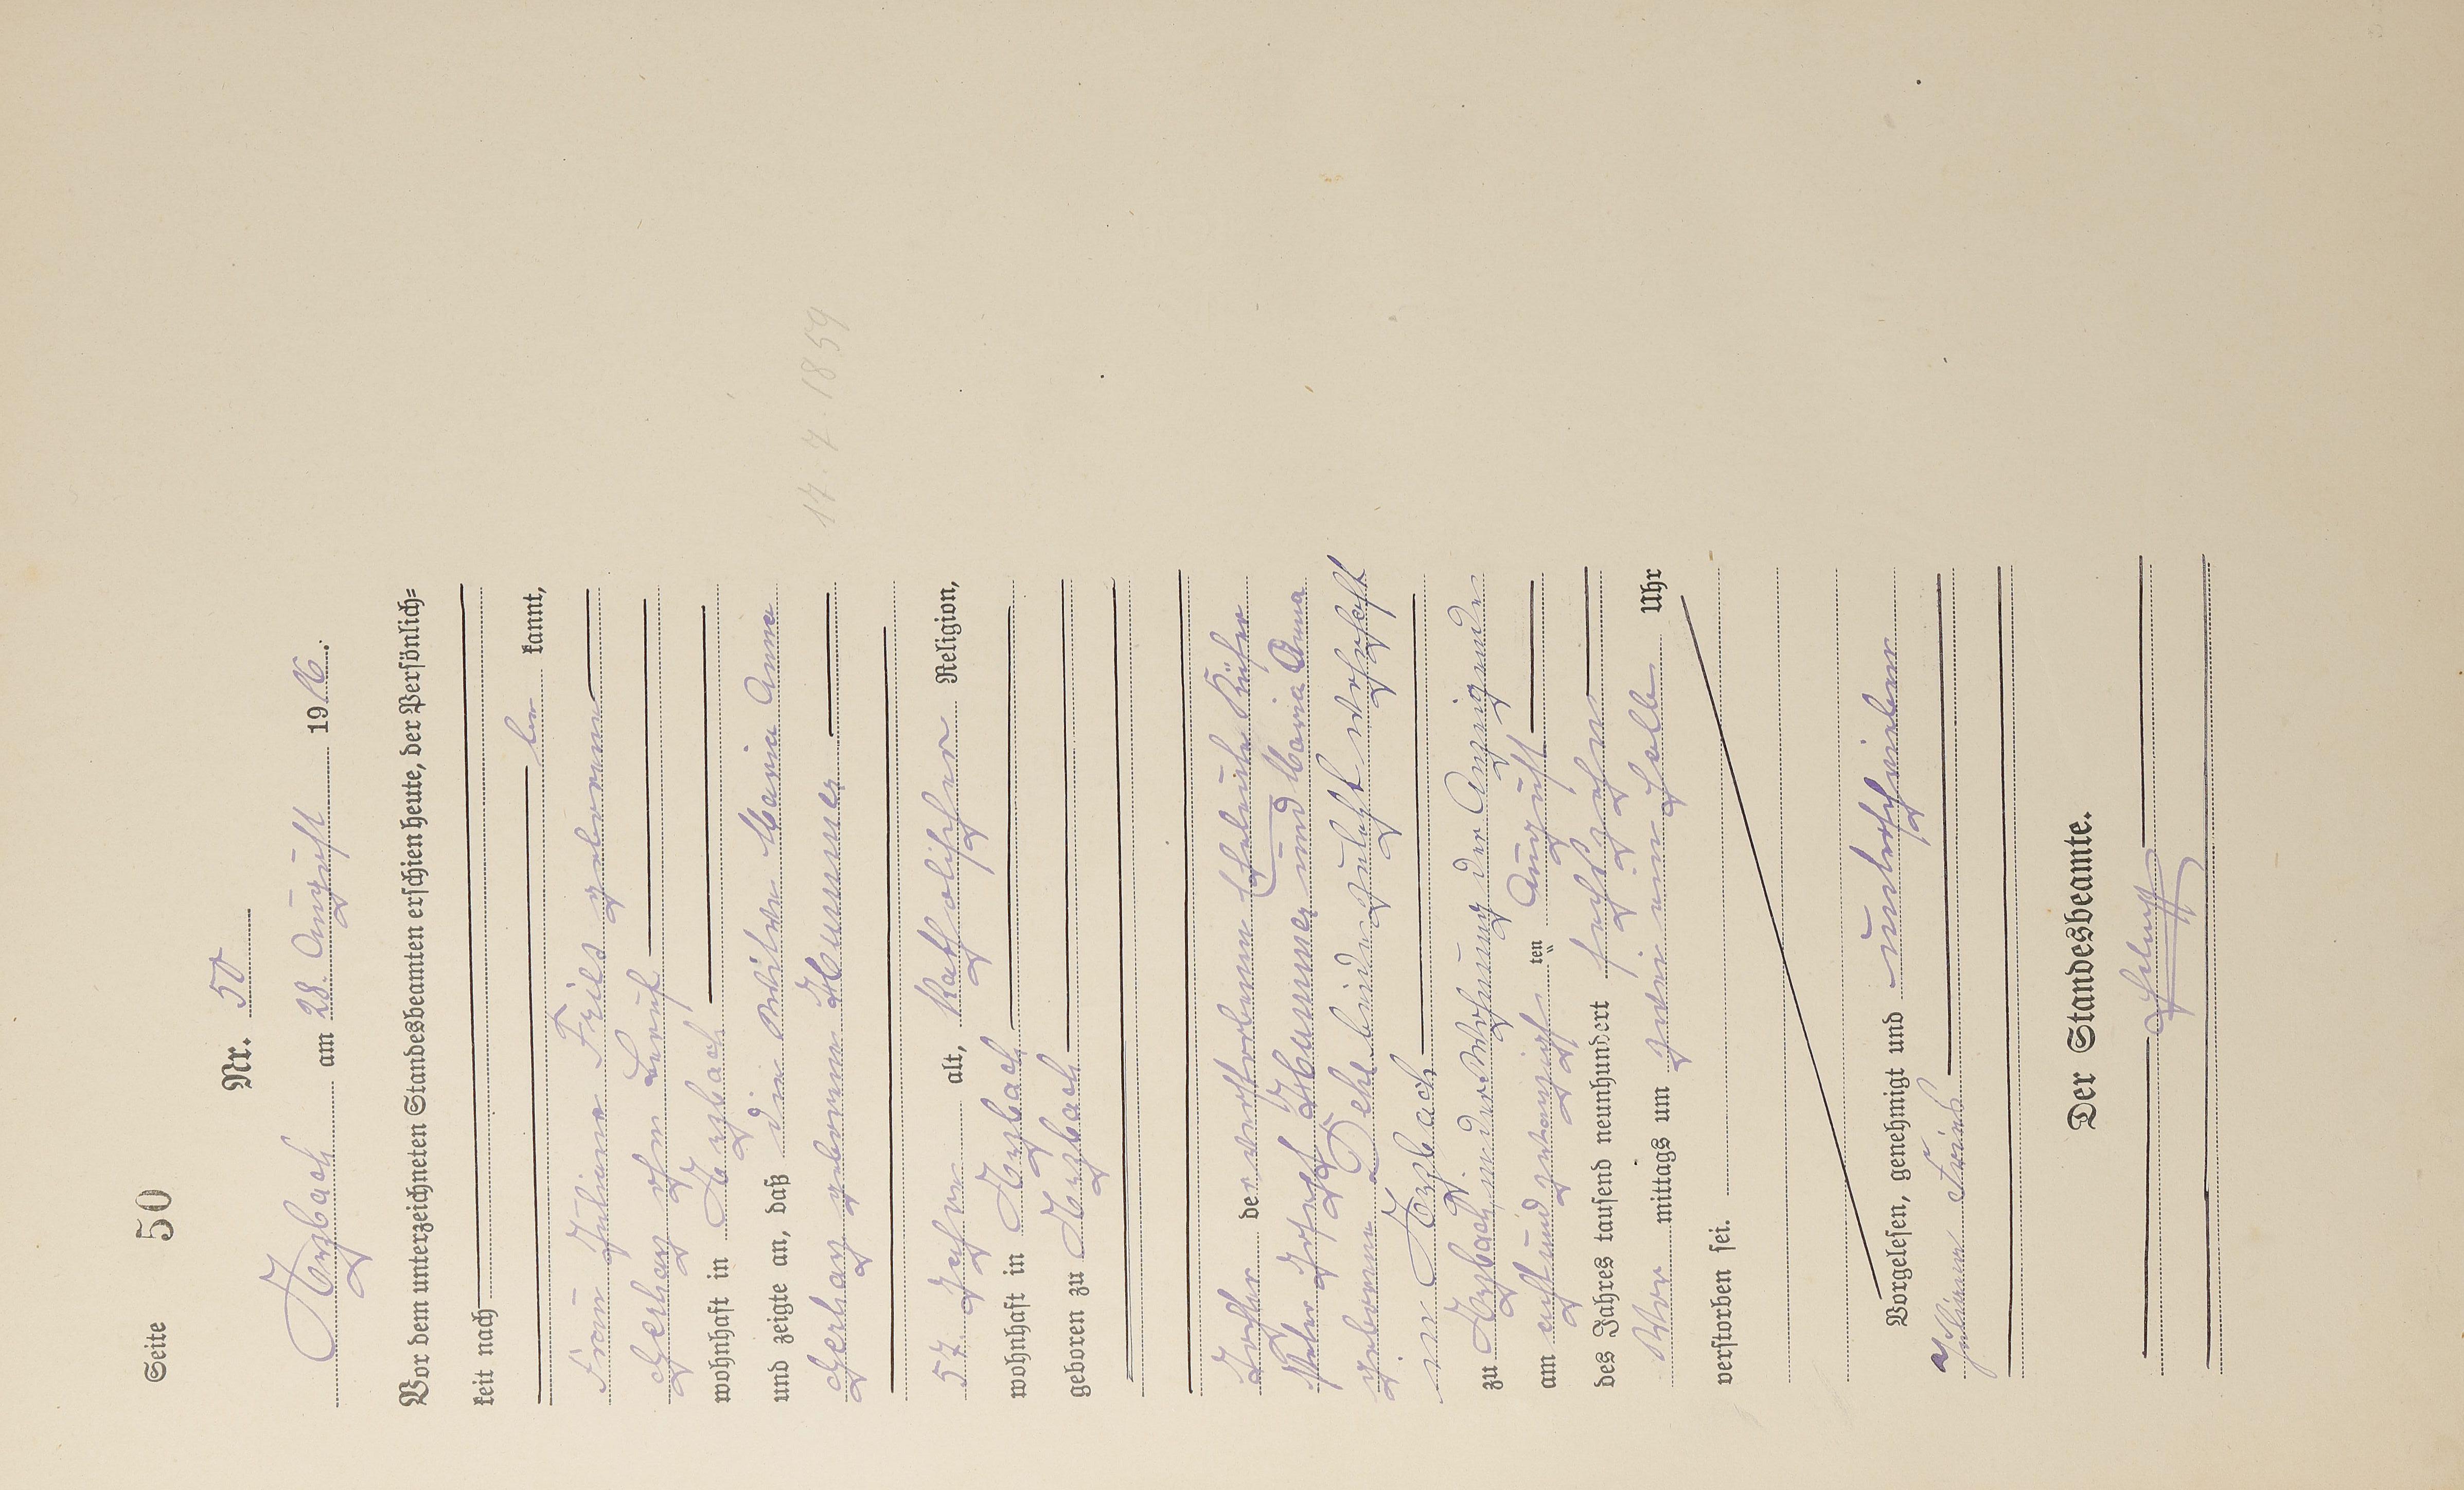 Seite 50
Nr. 50
Herzbach am 28. August 1916.
Vor dem unterzeichneten Standesbeamten erschien heute, der Persönlich-
keit nach
be kannt,
Frau Juliane Fries geborene
Gerhaz ohn Beruf
wohnhaft in Herzbach
und zeigte an, daß die Witwe Maria Anna
Gerhaz geborene Hummer
17.7.1859
57 Jahre alt, katholischer Religion,
wohnhaft in Herzbach
geboren zu Herzbach
Tochter der verstorbenen Eheleute Küfer
Peter Josef Hummer und Maria Anna
geborene Dehl beide zuletzt wohnhaft
in Herzbach
zu Herzbach, in der Wohnung der Anzeigende
am acht und zwanzigs ten August
des Jahres tausend neunhundert sechszehn
Vor mittags um zwei ein halb Uhr
verstorben sei.
Vorgelesen, genehmigt und unterschrieben
Juliane Fries
Der Standesbeamte.